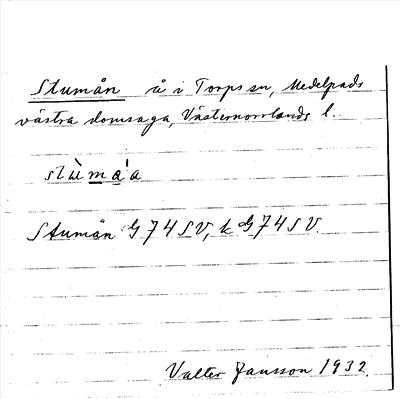 Stumån å i Torps sn, Medelpads
västra domsaga, Västernorrlands l.
stùmáa
Stumån G 74 SV, k G 74 SV.
Valter Jansson 1932.